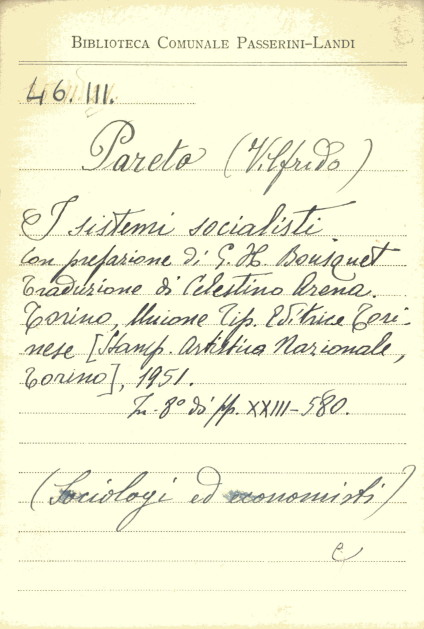 BIBLIOTECA COMUNALE PASSERINI-LANDI
46. III.
Pareto (Vilfredo)
I sistemi socialisti
con prefazione di G. H. Bousquet
Traduzione di Celestino Arena.
Torino, Unione Tip. Editrice Tori-
nese [Stamp. Artistica Nazionale,
Torino], 1951.
In-8° di pp. XXIII-580.
(Sociologi ed economisti)
c